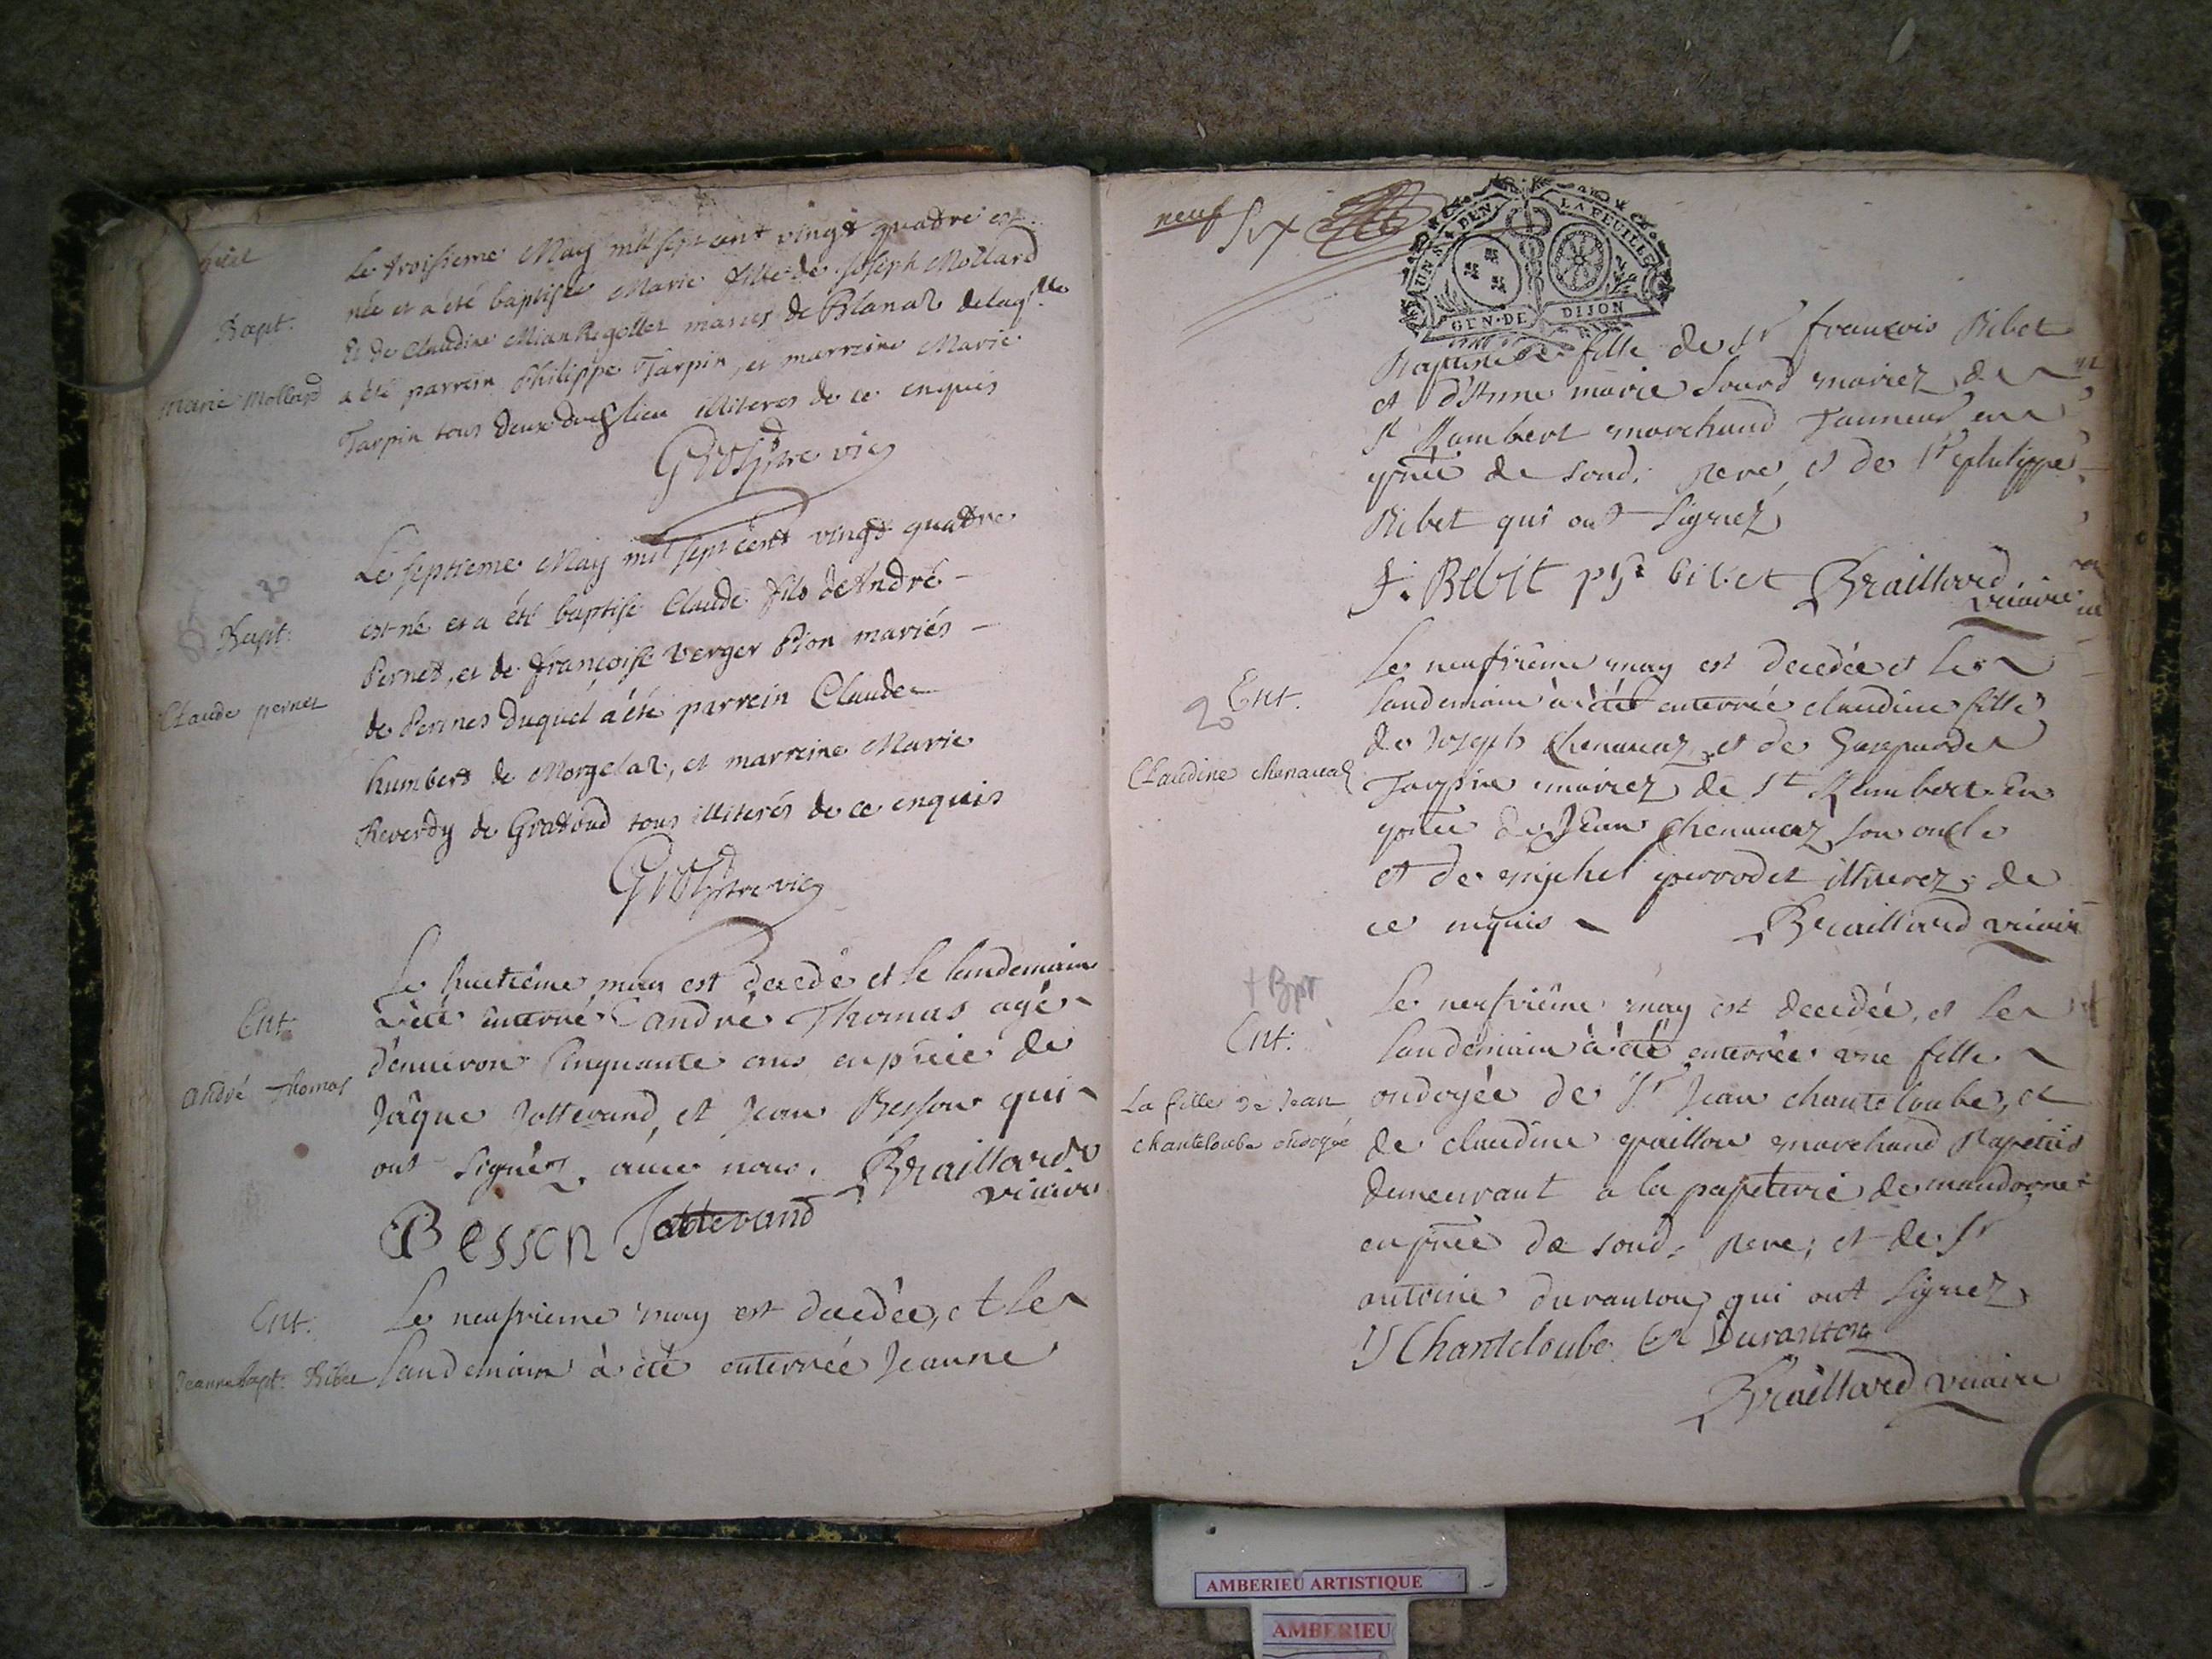 huit
Le troisieme May mil sept cent vingt quatre est
née et a été baptisée Marie fille de Joseph Mollard
Bapt.
et de Claudine Mian Rigollet mariés de Blanaz delaq.lle
marie Mollard
a été parrein Philippe Tarpin, et marreine Marie
Tarpin tous deux dud lieu illiteres de ce enquis
Gros ptre vic
Le septieme May mil sept cent vingt quatre
est né et a été baptisé Claude fils de André
Bapt.
Pernet, et de Françoise Verger Pion mariés
Claude pernet
de Pernes duquel a été parrein Claude
humbert de Morgelaz, et marreine Marie
Reverdy de Grattoud tous illiterés de ce enquis
Gros ptre vic
Le huitiême may est decedé et le landemain
Ent.
à été enterré andré Thomas agé
d'environ Cinquante ans en pñce de
andré Thomas
Jâque Jottevand, et Jean Besson qui
ont signéz avec nous. Braillard
vicaire
Besson Jattevand
Ent.
Le neufvieme may est decedée, et le
Jeanne bapt. Ribet
landemain à été enterrée Jeanne
neuf Six
GEN. DE DIJON
LA FEUILLE
Baptiste fille de Sr françois Ribet
et d'Anne marie Sourd mariez de
St Rambert marchand Tanneur en
pñce de sond. pere, et de Sr philippe
Ribet qui ont signez
f. Ribet ph bibet Braillard
vicaire
Le neufvième may est decedée et le
Ent.
20
landemain à été enterrée claudine fille
de Joseph chenavaz et de Gasparde
Claudine chenavaz
Tarpin mariez de St Rambert En
pñce de Jean chenavaz son oncle
et de michel perrodet illiterez de
ce enquis Braillard vicair
+ Bpt
Ent.
Le neufvième may est decedée, et le
landemain à été enterrée une fille
La fille de Jean
chanteloube ondoyée
ondoyée de Sr Jean chanteloube, et
de claudine paillou marchand Papetié
demeurant a la papeterie de mandorne
en pñce de sond. pere; et de Sr
antoine duranton qui ont signez
J Chanteloube Duranton
Braillard vicaire
AMBERIEU ARTISTIQUE
AMBERIEU